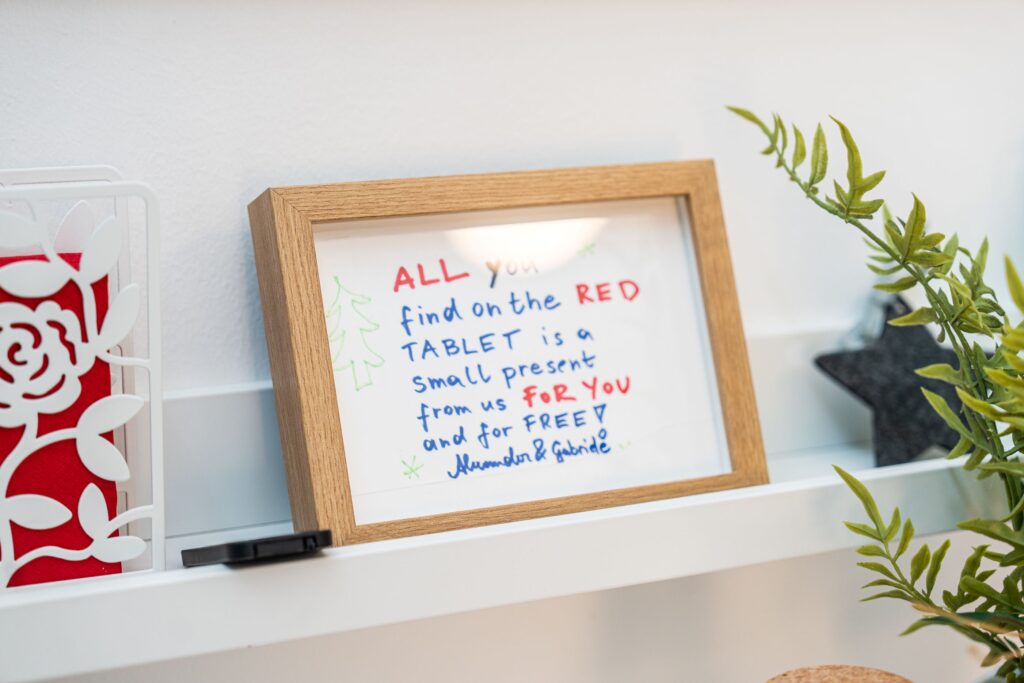 ALL you
find on the RED
TABLET is a
small present
from us FOR YOU
and for FREE!
& Gabriele